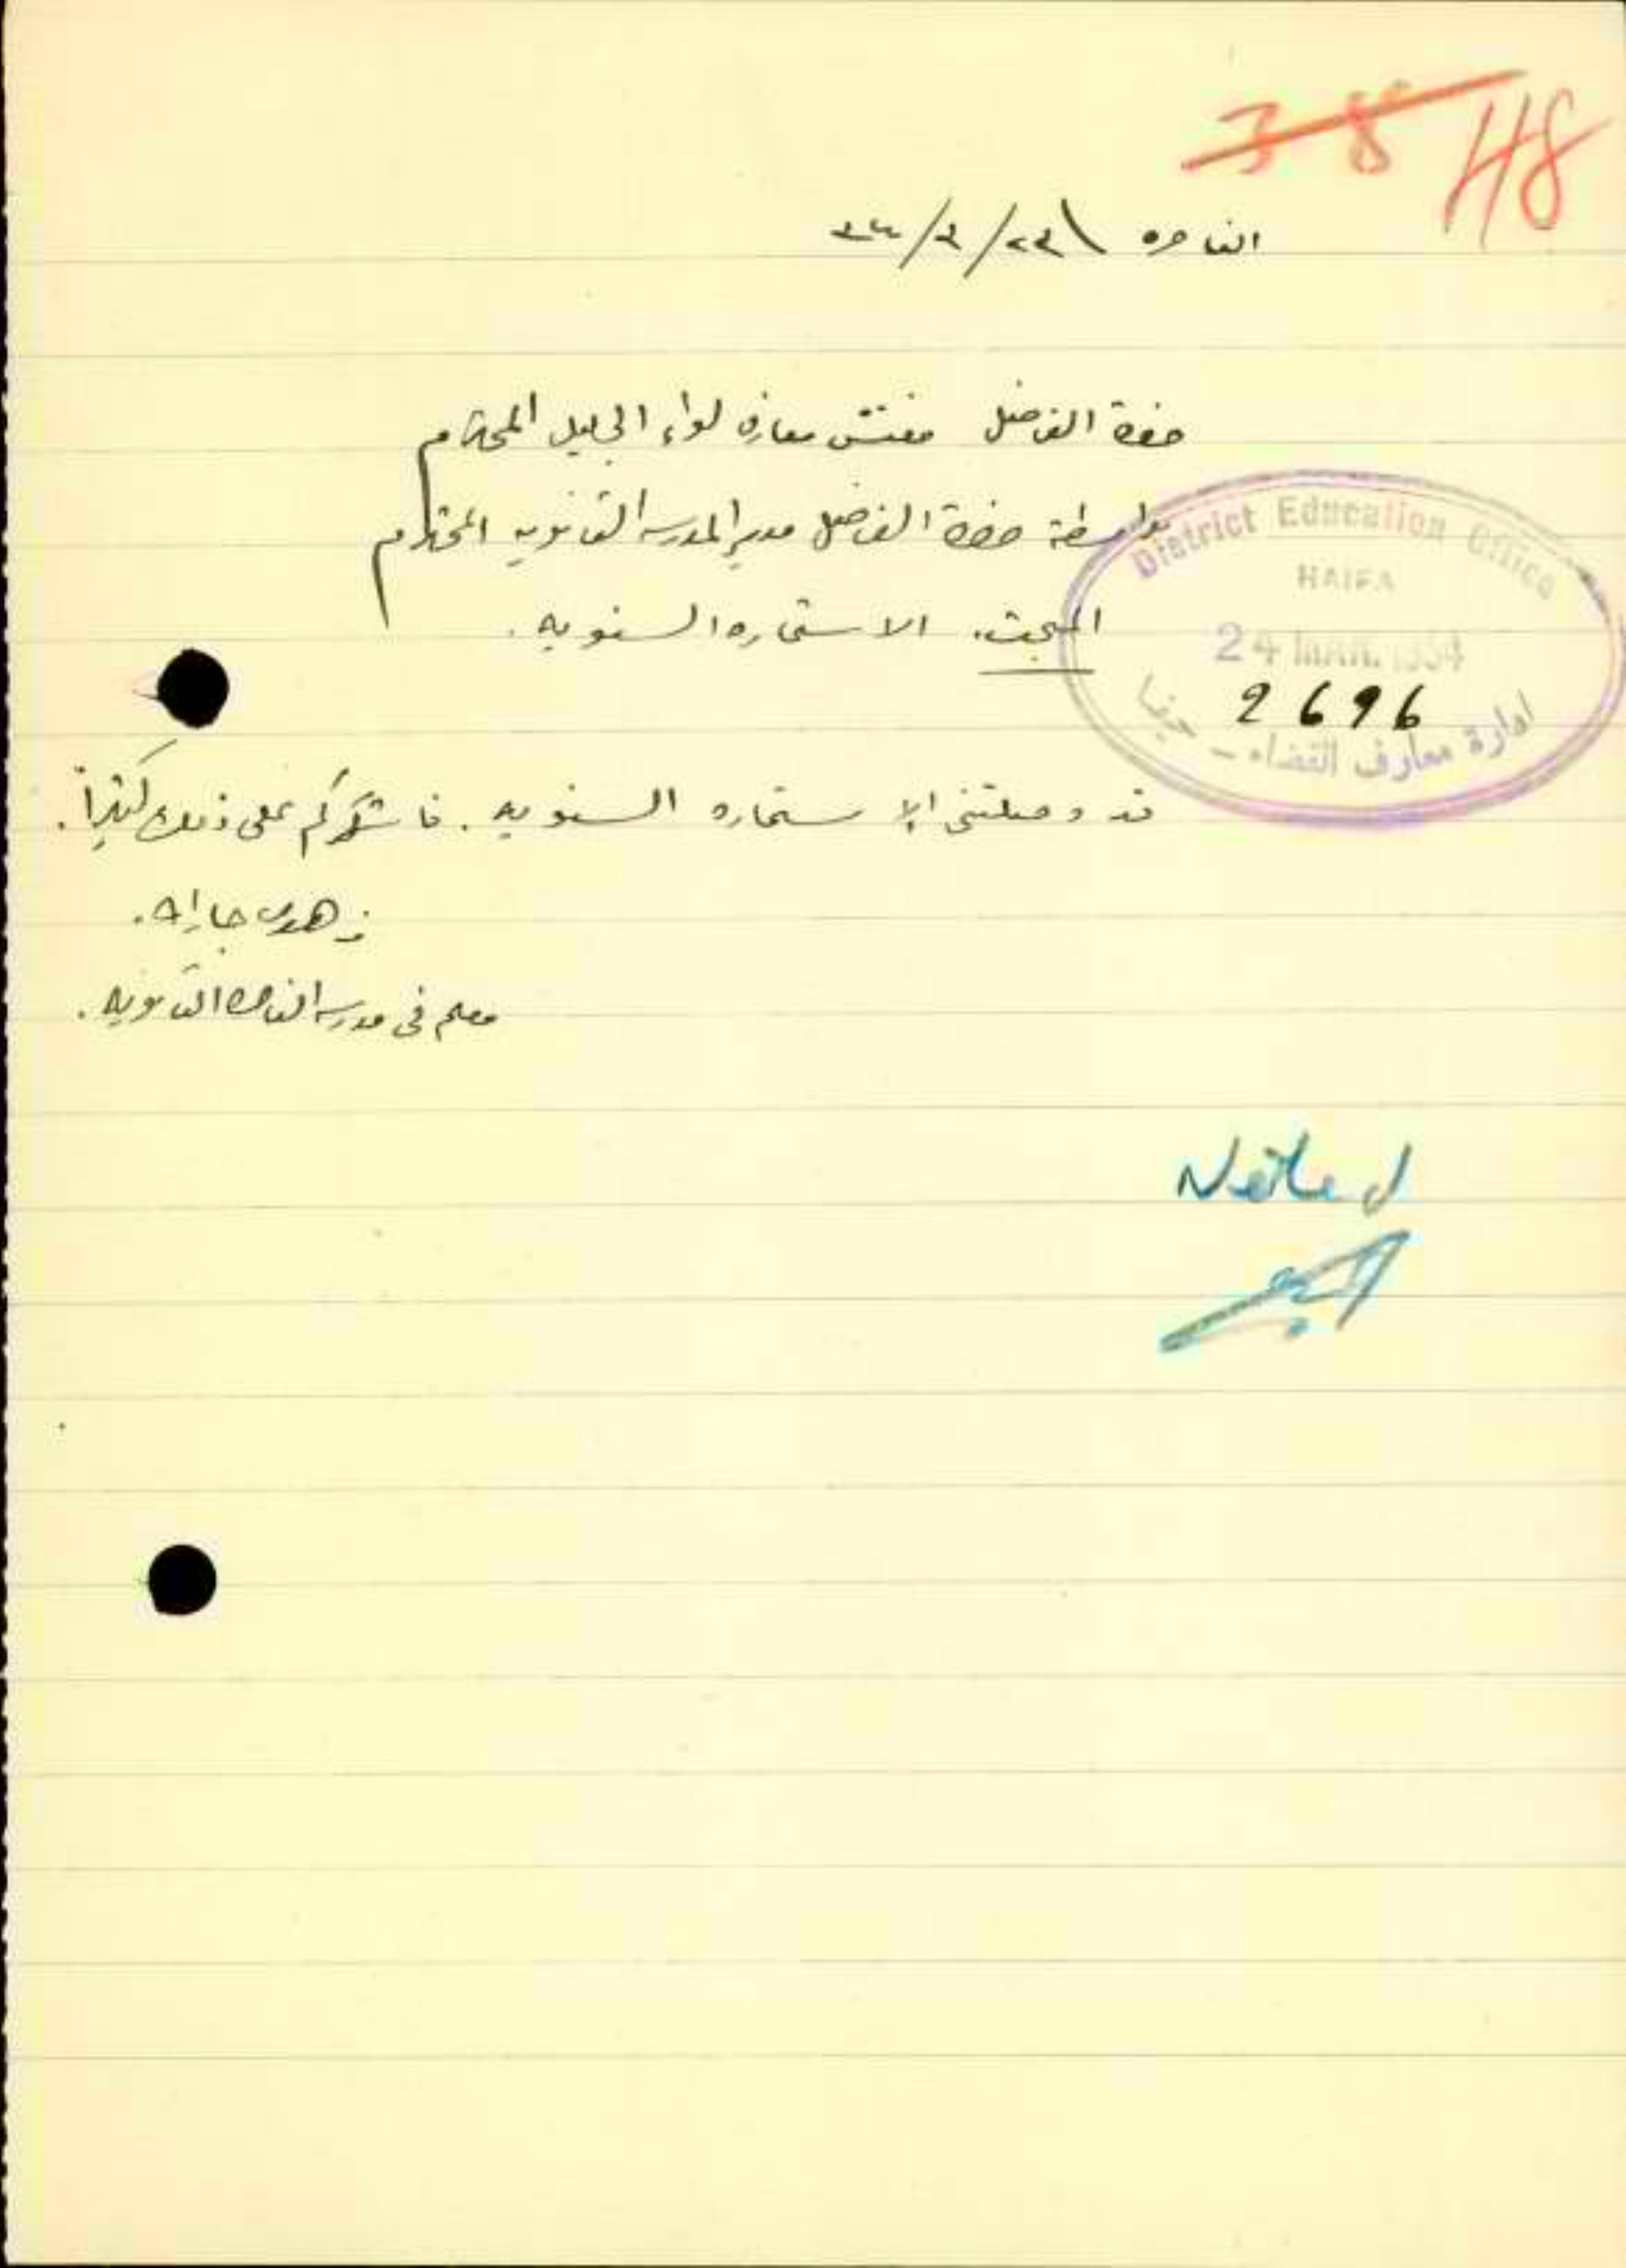 38 48
الناصره ٢٣/٣/٣٤
حضرة الفاضل مفتش معارف لواء الجليل المحترم
بواسطة حضرة الفاضل مدير المدرسه الثانويه المحترم
المبحث، الاستماره السنويه.
District Education Office
HAIFA
24 MAR. 1934
2696
ادارة معارف القضاء - حيفا
قد وصلتني الاستماره السنويه. فاشكركم على ذلك كثيراً.
زهدي جارالله.
معلم في مدرسه الناصره الثانويه.
Noted